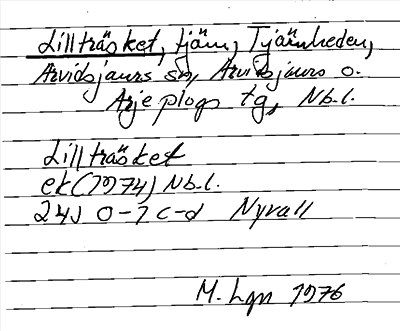 Lillträsket, tjärn, Tjärnheden,
Arvidsjaurs sn, Arvidsjaurs o.
Arjeplogs tg, Nb.l.
Lillträsket
ek (1974) Nb.l.
24J 0-1 c-d Nyvall
M. Lgn 1976